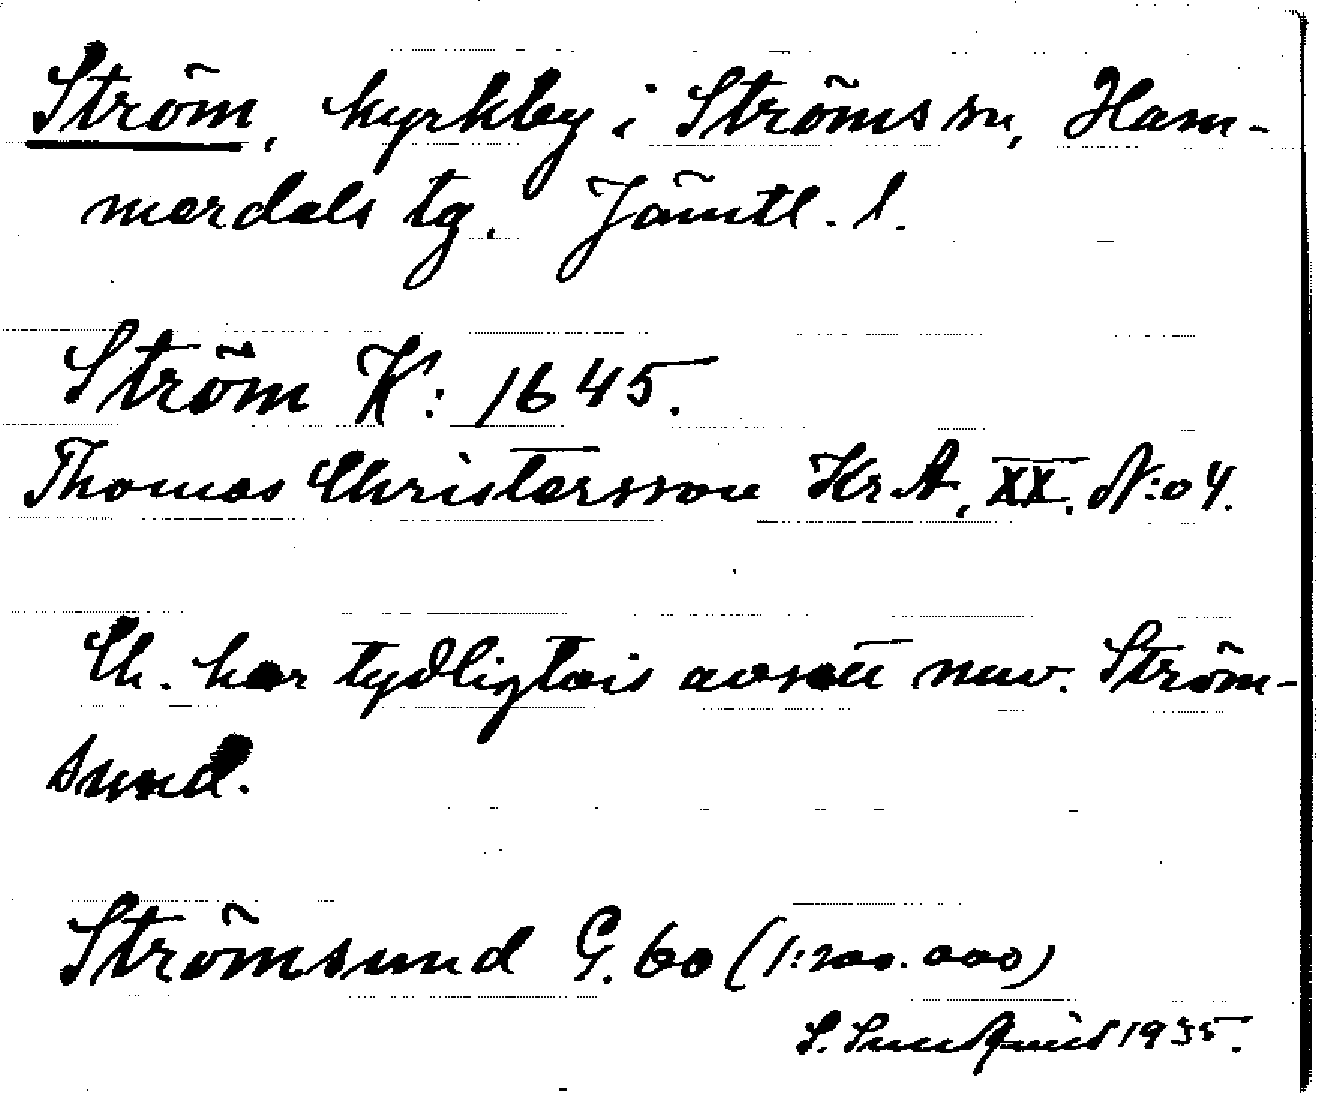 Ström, kyrkby i Ströms sn, Ham-
merdals tg. Jämtl. l.
Ström K: 1645.
Thomas Christersson Kr. A, XX. N:o 4.
Ch. har tydligtvis avsett nuv. Ström-
sund.
Strömsund G. 60 (1:200.000)
1935.